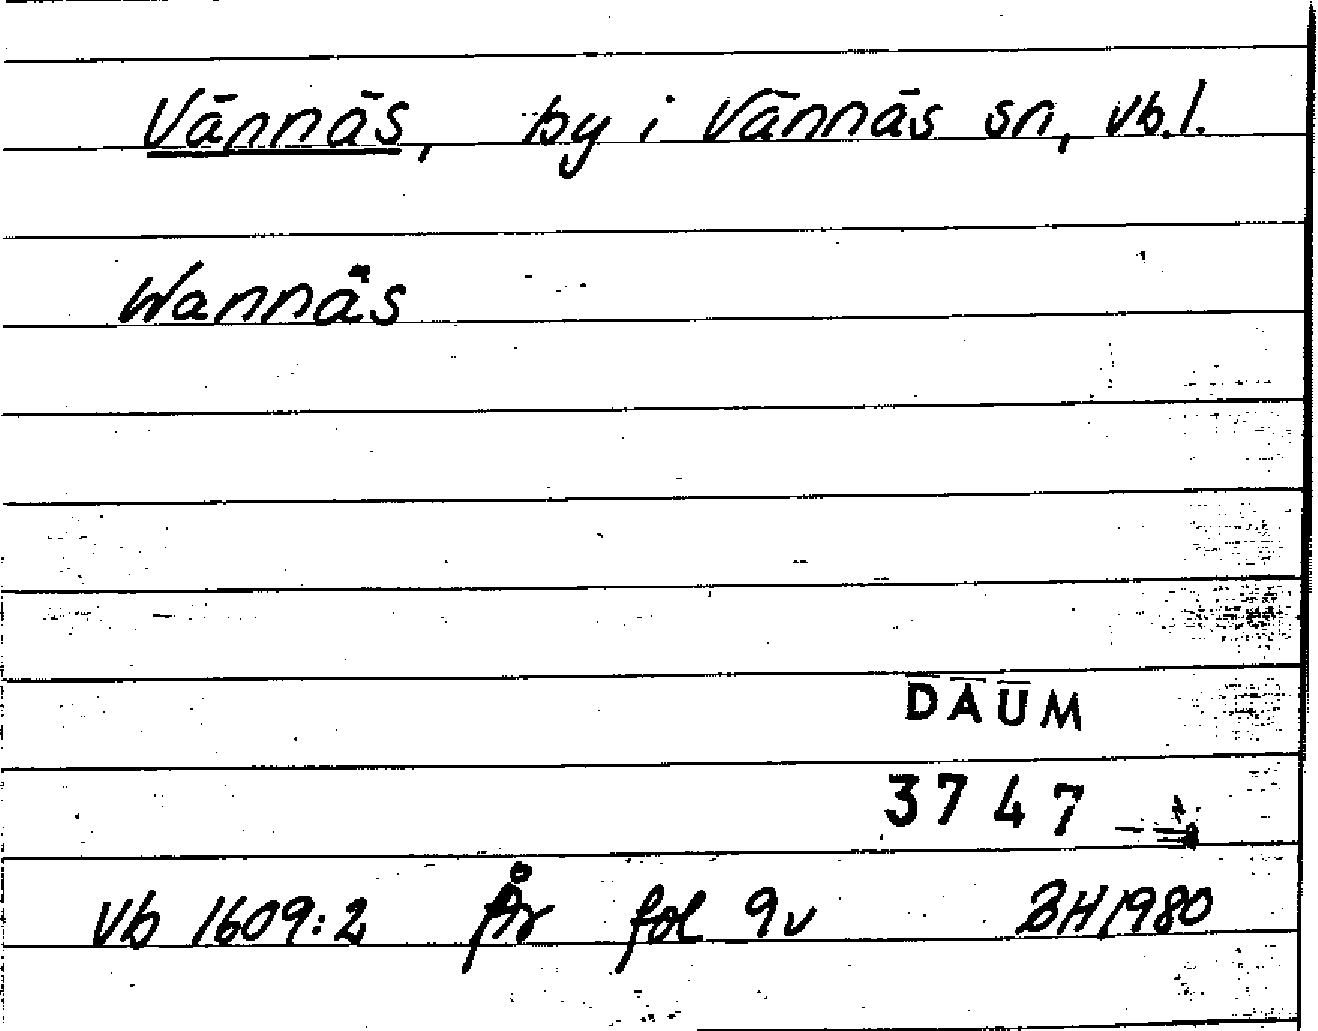 Vännäs, by i Vännäs sn, Vb.l.
Wannäs
DAUM
3747
Vb 1609:2 År fol 9v BH 1980